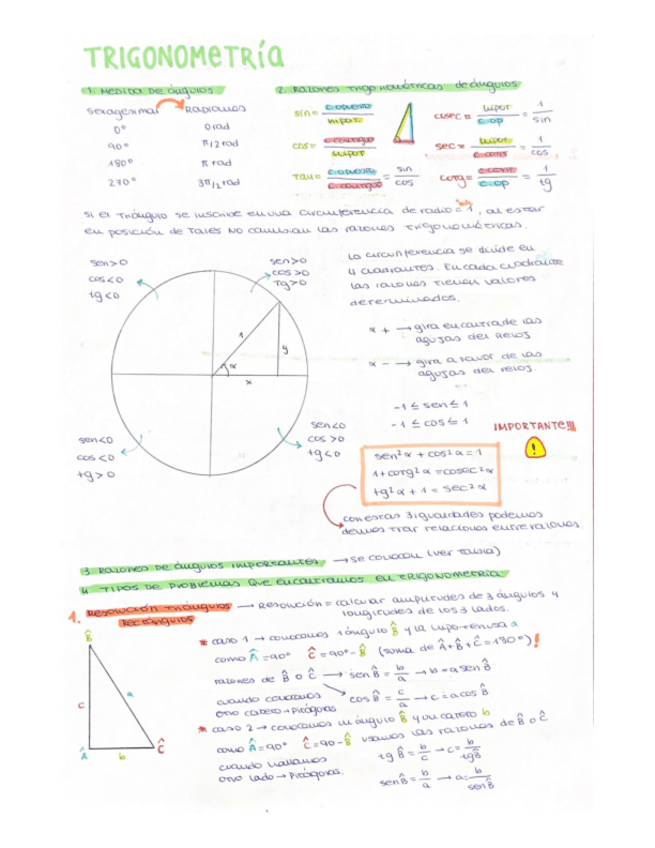 TRIGONOMETRía
1. MEDIDA DE ángulos
sexagesimal Radianes
0º 0 rad
90º π/2 rad
180º π rad
270º 3π/2 rad
2. Razones trigonométricas de ángulos
sin = c.opuesto / hipot.
cos = c.contiguo / hipot.
tan = c.opuesto / c.contiguo = sin / cos
cosec = hipot / c.op = 1 / sin
sec = hipot / c.cont = 1 / cos
cotg = c.cont / c.op = 1 / tg
si el triángulo se inscribe en una circunferencia de radio = 1, al estar
en posición de Tales no cambian las razones trigonométricas.
sen>0
cos<0
tg<0
sen>0
cos>0
Tg>0
1
y
α
x
sen<0
cos<0
tg>0
sen<0
cos>0
tg<0
La circunferencia se divide en
4 cuadrantes. En cada cuadrante
las razones tienen valores
determinados.
α + → gira en contra de las
agujas del reloj
α - → gira a favor de las
agujas del reloj.
-1 ≤ sen ≤ 1
-1 ≤ cos ≤ 1
IMPORTANTE!!!
!
sen²α + cos²α = 1
1 + cotg²α = cosec²α
tg²α + 1 = sec²α
con estas 3 igualdades podemos
demostrar relaciones entre razones.
3. Razones de ángulos importantes → se conocen (ver tabla)
4 TIPOS DE PROBLEMAS QUE encontramos en TRIGONOMETRía
1. Resolución triángulos rectángulos → Resolución = calcular amplitudes de 3 ángulos y
longitudes de los 3 lados.
B̂
c
a
Â
b
Ĉ
* caso 1 → conocemos 1 ángulo B̂ y la hipotenusa a
como Â = 90º Ĉ = 90º - B̂ (suma de Â + B̂ + Ĉ = 180º)!
razones de B̂ o Ĉ → sen B̂ = b/a → b = a sen B̂
cuando conocemos
otro cateto → Pitágoras
cos B̂ = c/a → c = a cos B̂
* caso 2 → conocemos un ángulo B̂ y un cateto b
como Â = 90º Ĉ = 90 - B̂ usamos las razones de B̂ o Ĉ
cuando hallamos
otro lado → Pitágoras.
tg B̂ = b/c → c = b/tg B̂
sen B̂ = b/a → a = b/sen B̂